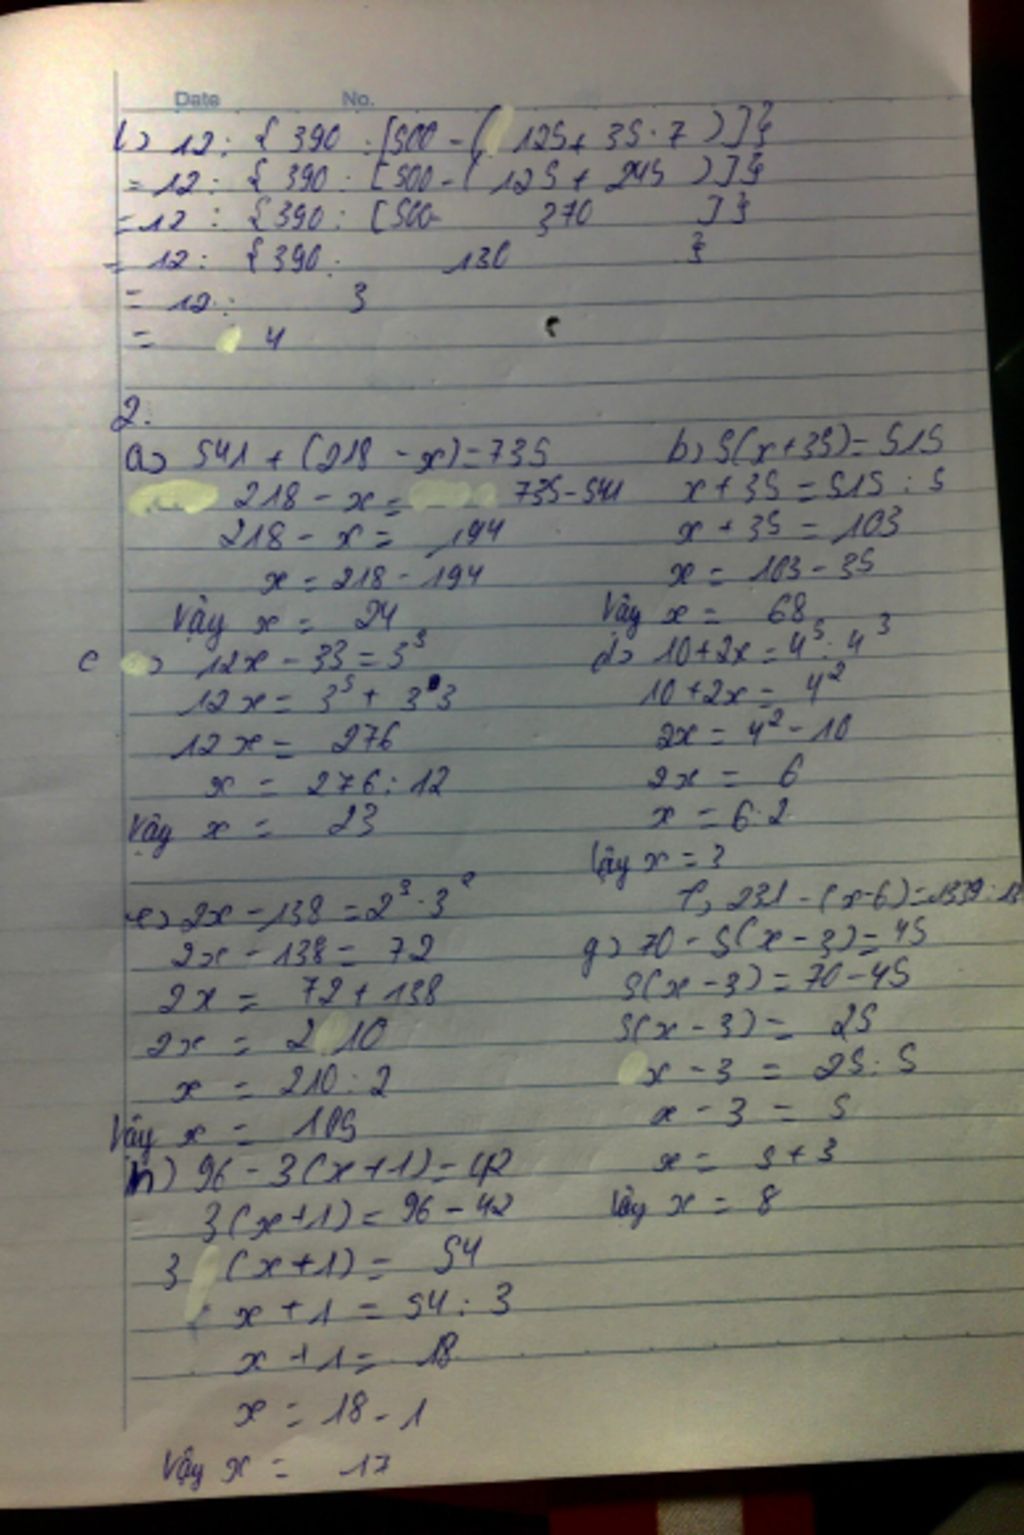 Date No.
b) 12 : { 390 : [500 - ( 125 + 35 . 7 ) ] }
= 12 : { 390 : [500 - ( 125 + 245 ) ] }
= 12 : { 390 : [500- 370 ] }
= 12 : { 390 : 130 }
= 12 : 3
= 4
2.
a) 541 + (218 - x) = 735
218 - x = 735 - 541
218 - x = 194
x = 218 - 194
Vậy x = 24
b) 5(x + 35) = 515
x + 35 = 515 : 5
x + 35 = 103
x = 103 - 35
Vậy x = 68
c) 12x - 33 = 3⁵
12x = 3⁵ + 33
12x = 276
x = 276 : 12
Vậy x = 23
d) 10 + 2x = 4⁵ : 4³
10 + 2x = 4²
2x = 4² - 10
2x = 6
x = 6 : 2
Vậy x = 3
e) 2x - 138 = 2³ . 3²
2x - 138 = 72
2x = 72 + 138
2x = 210
x = 210 : 2
Vậy x = 105
f, 231 - (x - 6) = 1339 :
g) 70 - 5(x - 3) = 45
5(x - 3) = 70 - 45
5(x - 3) = 25
x - 3 = 25 : 5
x - 3 = 5
x = 5 + 3
Vậy x = 8
h) 96 - 3(x + 1) = 42
3(x + 1) = 96 - 42
3 (x + 1) = 54
x + 1 = 54 : 3
x + 1 = 18
x = 18 - 1
Vậy x = 17